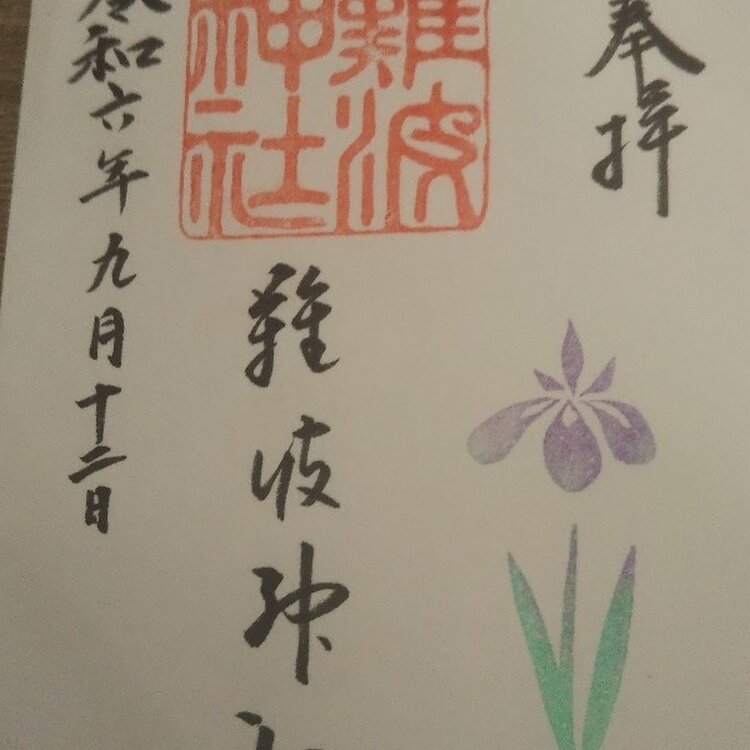 奉拝
難波
神社
難波神社
令和六年九月十二日